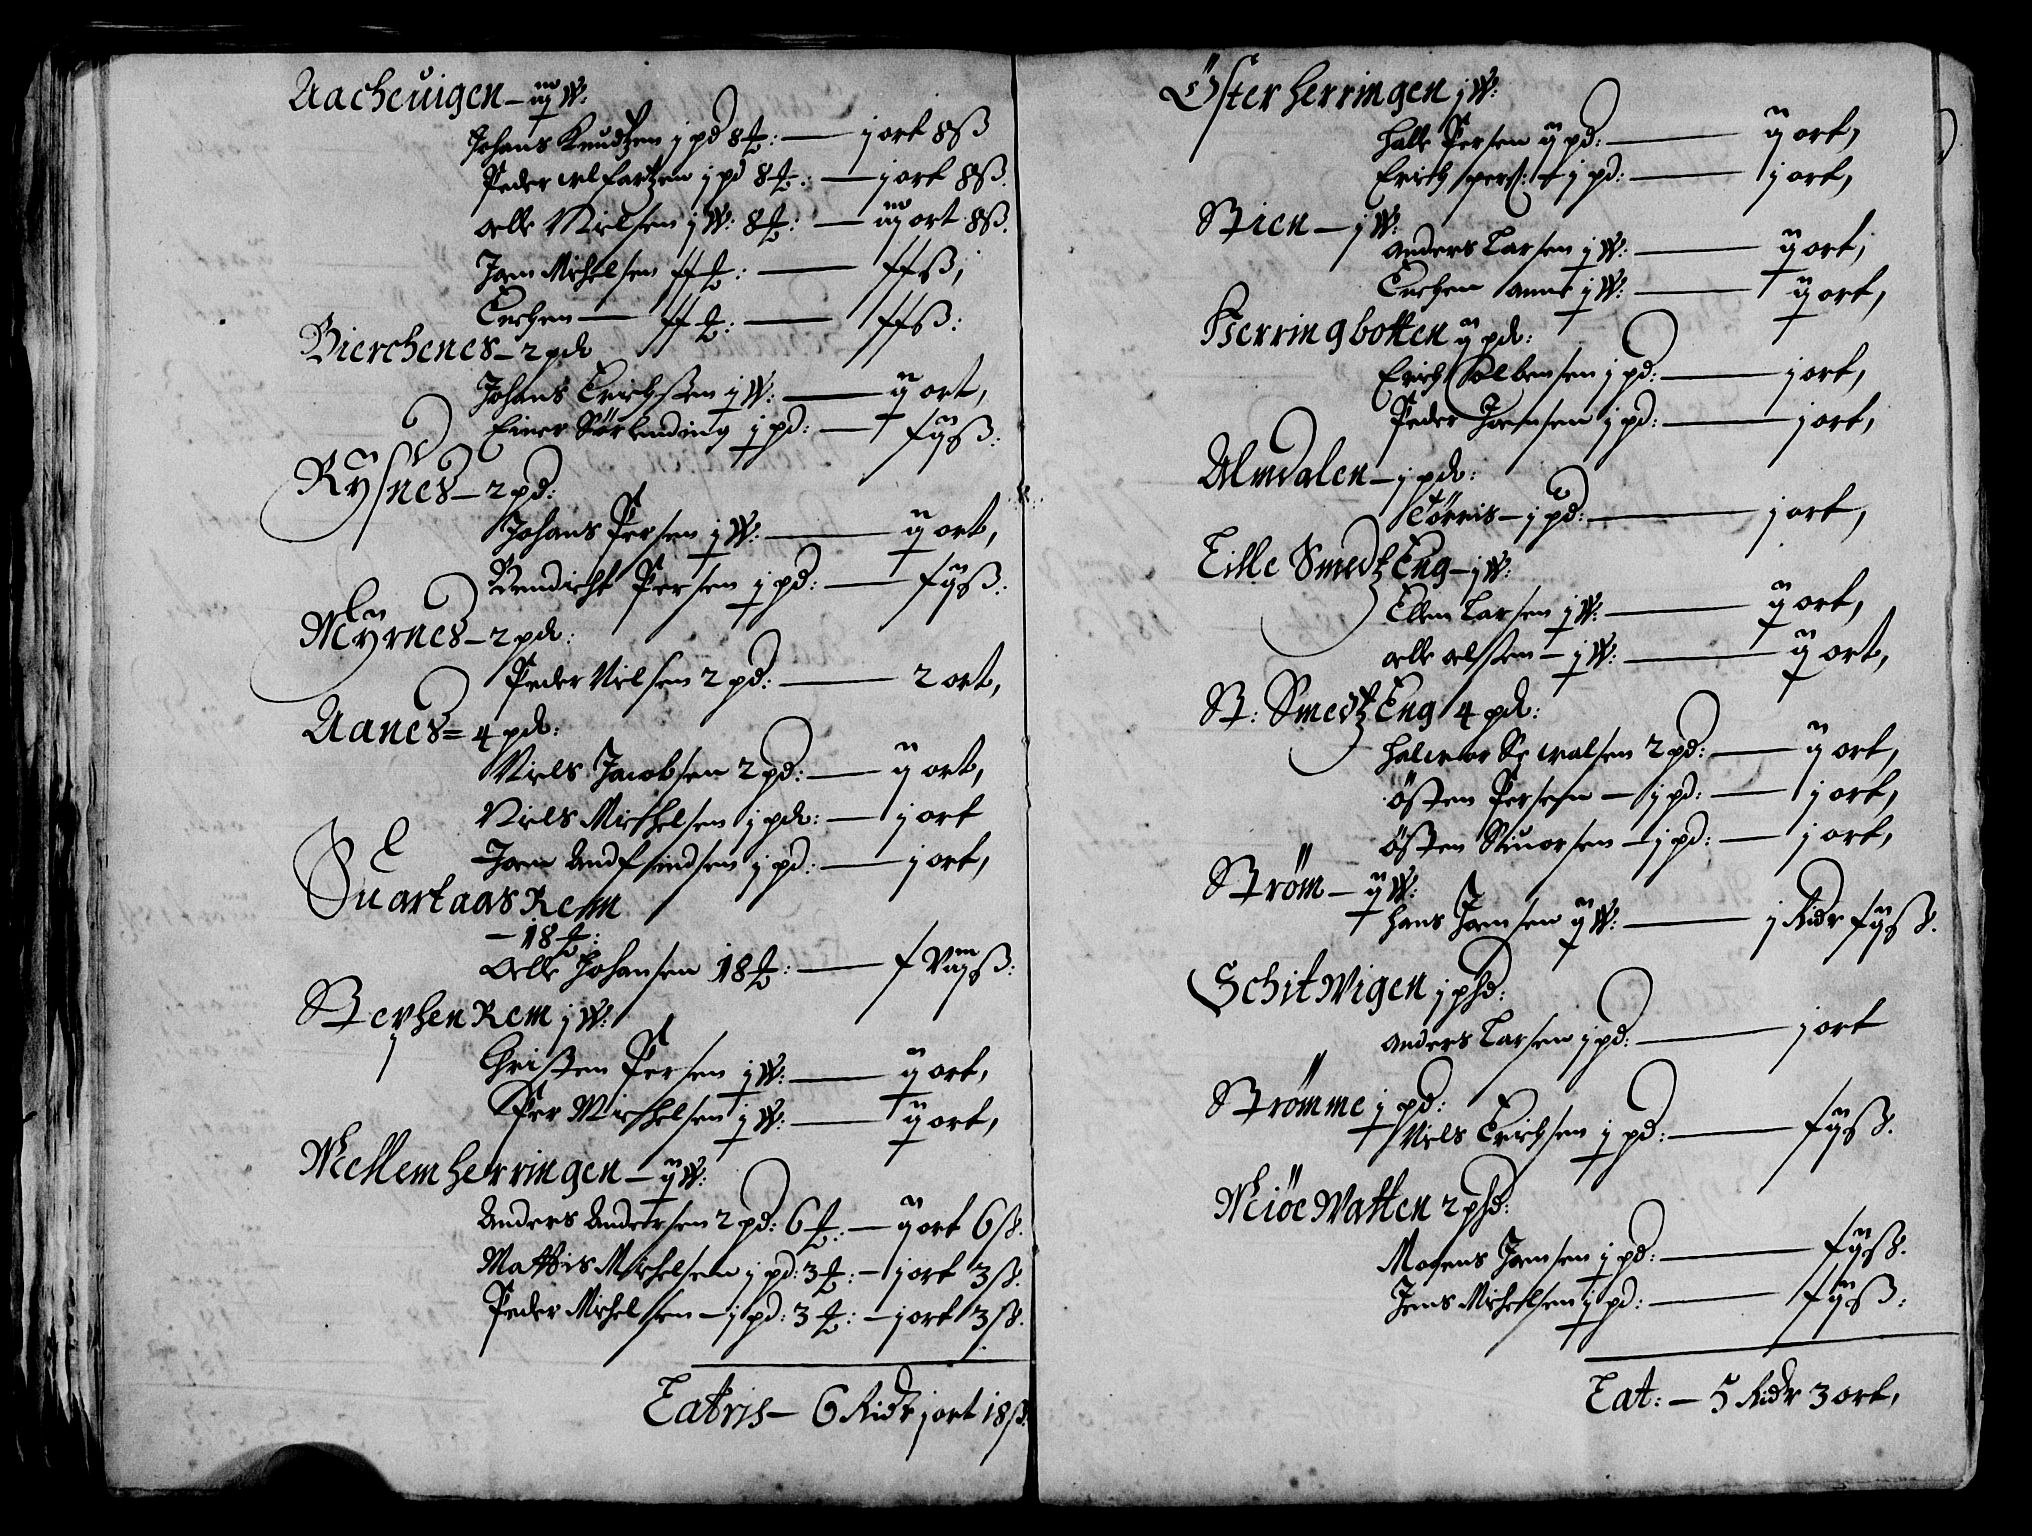 Aacheuigen – iij W:
Johans Knudtzen j pd 8 ℔: — j ort 8 ß
Peder Olfartzen j pd 8 ℔: — j ort 8 ß.
Olle Nielsen j W: 8 ℔: — iij ort 8 ß.
Jom Michelsen ff ℔: — ff ß;
Enchen — ff ℔: — ff ß:
Bierchenes – 2 pd
Johans Erichssen j W: — ij ort,
Einer Sörlending j pd: — f ij ß.
Rysnes – 2 pd:
Johans Persen j W: — ij ort,
Bendicht Persen j pd: — f ij ß:
Myrnes – 2 pd:
Peder Nielsen 2 pd: — 2 ort,
Aanes = 4 pd:
Niels Jacobsen 2 pd: — ij ort,
Niels Michelsen j pd: — j ort
Jom Andfindsen j pd: — j ort,
Suartaas Rem
– 18 ℔:
Olle Johansen 18 ℔: — f Viij ß:
Stephen Rem j W:
Christen Persen j W: — ij ort,
Per Michelsen j W: — ij ort,
Mellem herringen – ij W:
Anders Andersen 2 pd: 6 ℔: — ij ort 6 ß.
Mattis Michelsen j pd: 3 ℔: – j ort 3 ß.
Peder Michelsen – j pd: 3 ℔: – j ort 3 ß.
Latris – 6 Ridr j ort 18 ß.
Öster herringen j W:
Halle Persen ij pd: — ij ort,
Erich pers: – j pd: — j ort,
Stien – j W:
Anders Larsen j W: — ij ort;
Enchen Anne j W: — ij ort,
Herringbotten ij pd:
Erich Olbensen j pd: — j ort,
Peder Jomsen j pd: — j ort,
Almdalen – j pd:
Törris – j pd: — j ort,
Lille Smedtz Eng – j W:
Ellen Larsen j W: — ij ort,
Olle Olsten – j W: — ij ort,
St: Smedtz Eng 4 pd:
Haluor Siwalsen 2 pd: — ij ort,
Östen Persen – j pd: — j ort,
Östen Stiuorsen – j pd: — j ort,
Ström – ij W:
Hans Jomsen ij W: — j Ridr f ij ß.
Schitwigen j phd:
Anders Larsen j pd: — j ort
Strömme j pd:
Niels Erichsen j pd: — f ij ß.
Miöe Watten 2 phd:
Mogens Jomsen j pd: — f ij ß.
Jens Michelsen j pd: — f ij ß:
Lat: – 5 Ridr 3 ort,